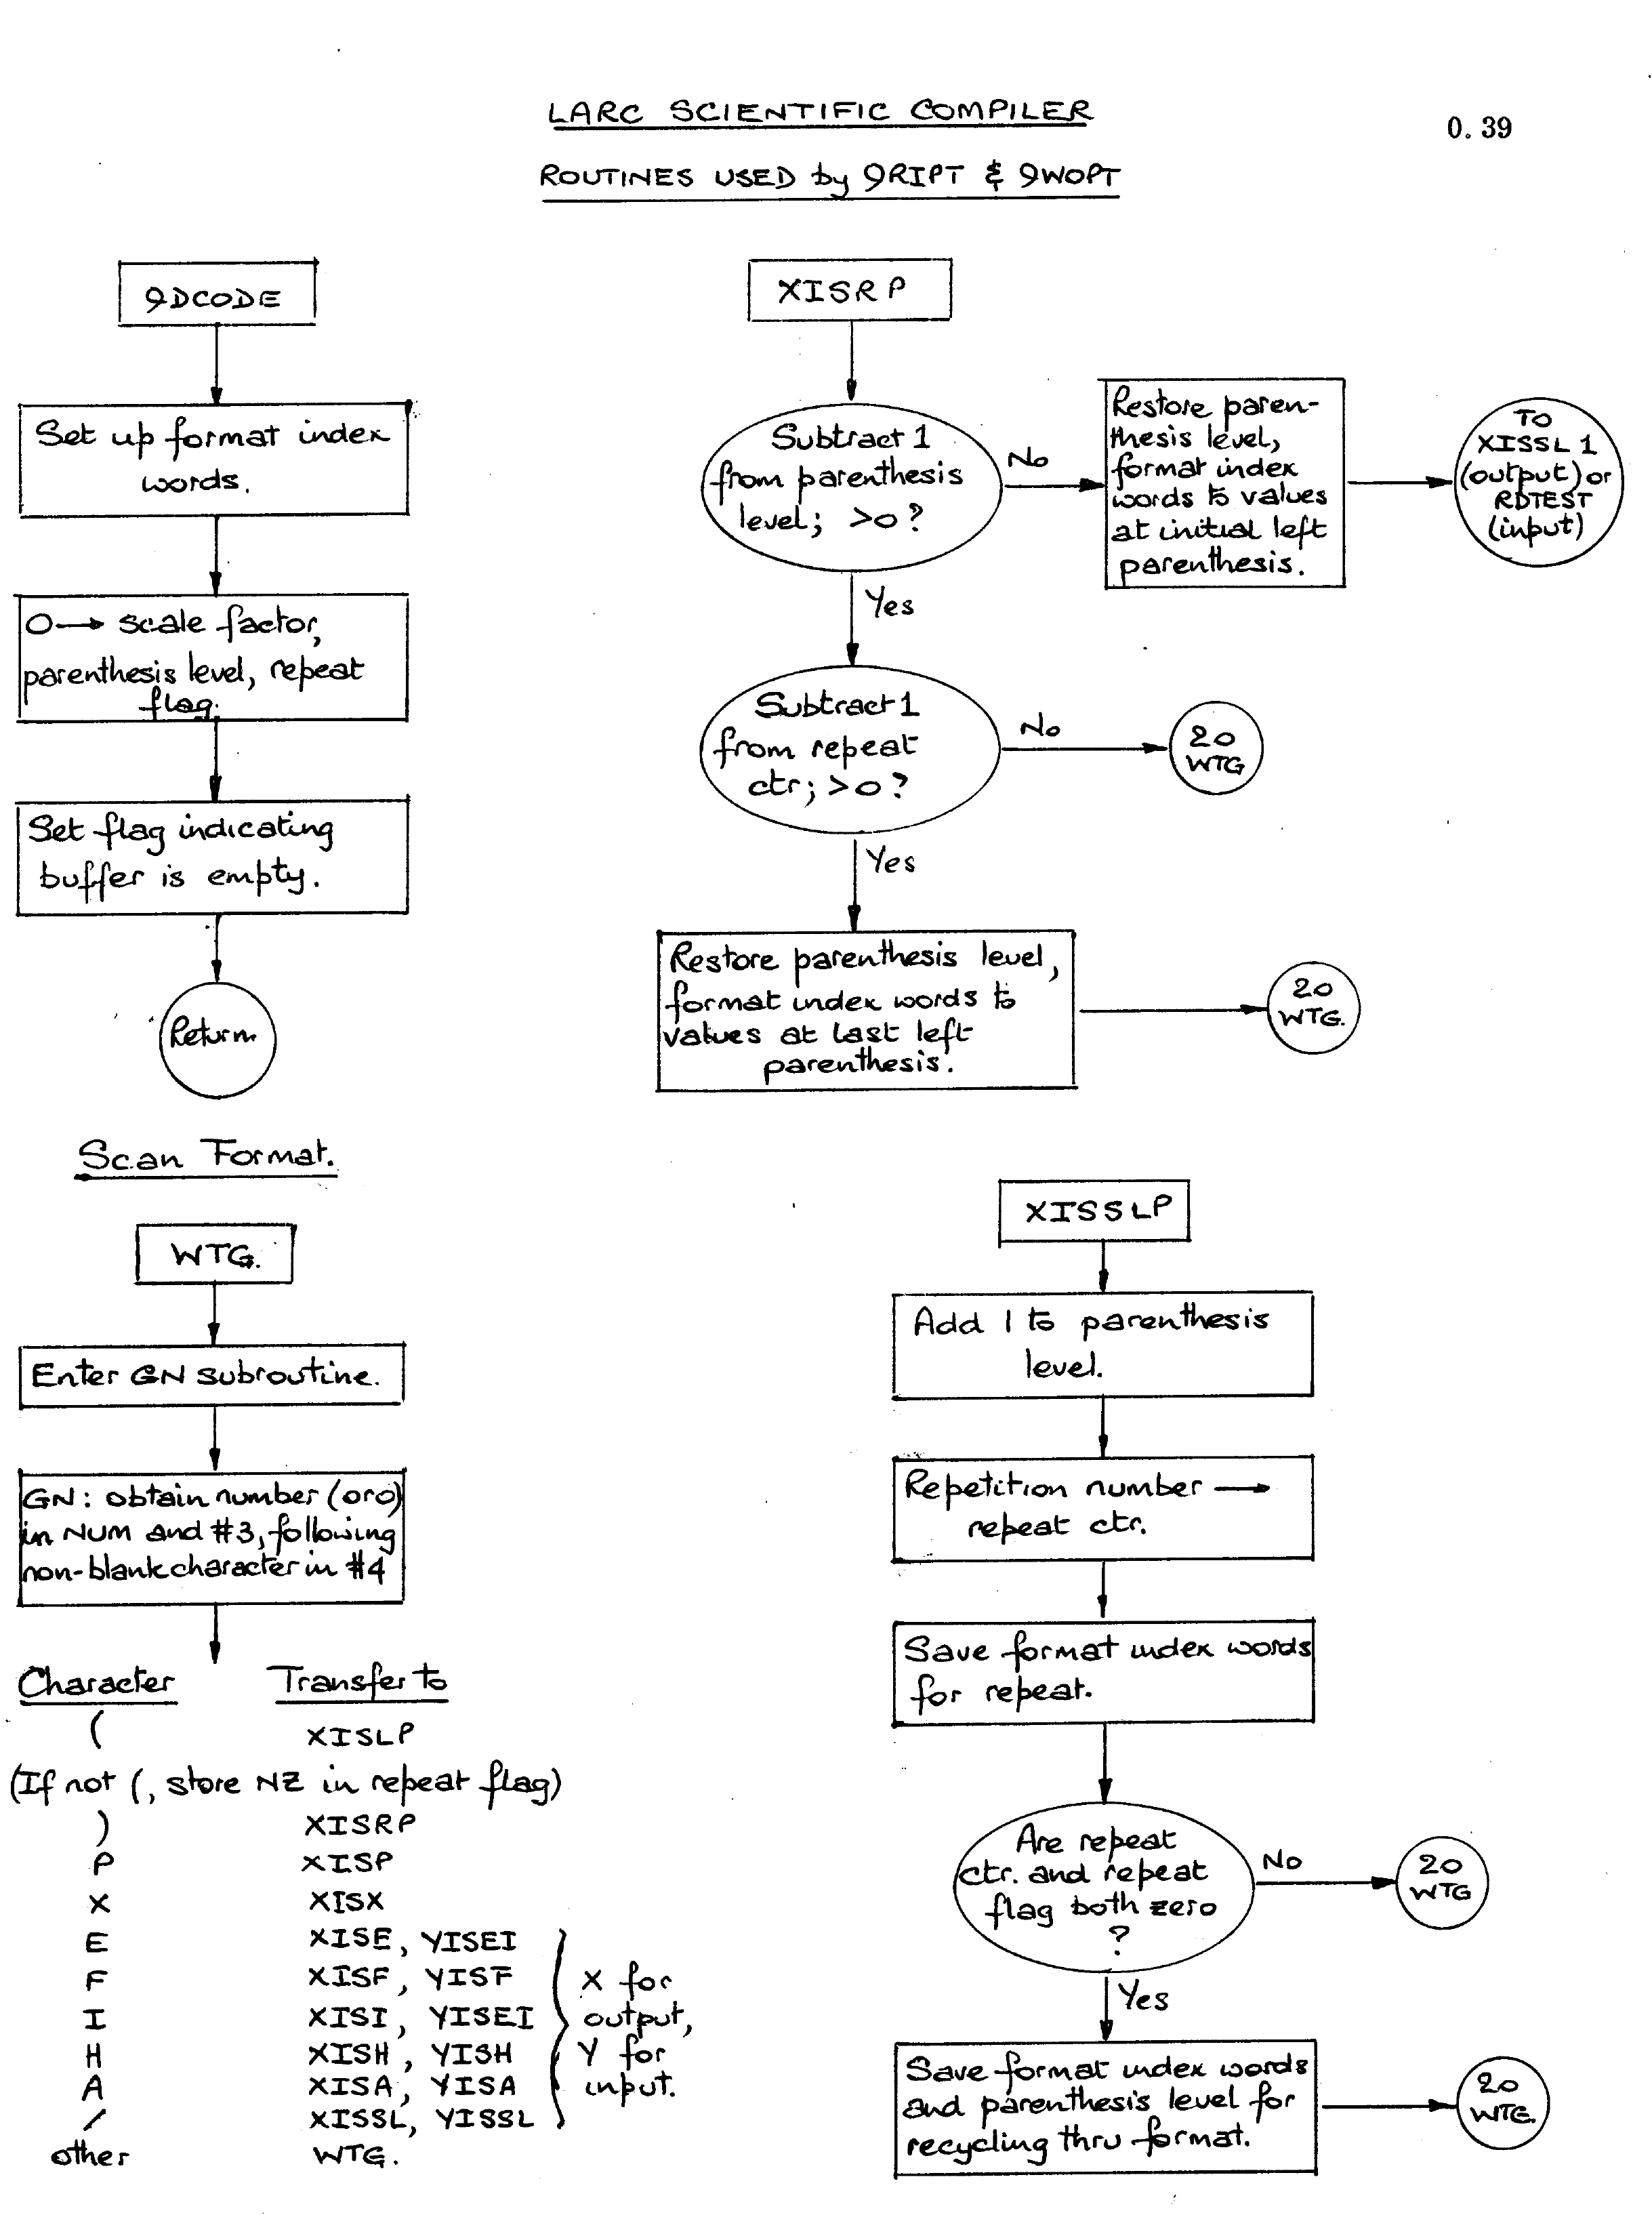 LARC SCIENTIFIC COMPILER
0. 39
ROUTINES USED by 9RIPT & 9WOPT
9DCODE
Set up format index
words.
O→ scale factor,
parenthesis level, repeat
flag.
Set flag indicating
buffer is empty.
Return
XISRP
Subtract 1
from parenthesis
level; >0?
No
Restore paren-
thesis level,
format index
words to values
at initial left
parenthesis.
TO
XISSL 1
(output) or
RDTEST
(input)
Yes
Subtract 1
from repeat
ctr; >0?
No
20
WTG
Yes
Restore parenthesis level,
format index words to
values at last left
parenthesis.
20
WTG.
Scan Format.
WTG.
Enter GN subroutine.
GN: obtain number (or0)
in NUM and #3, following
non-blank character in #4
Character Transfer to
( XISLP
(If not (, store NZ in repeat flag)
) XISRP
P XISP
X XISX
E XISE, YISEI
F XISF, YISF
I XISI, YISEI
H XISH, YISH
A XISA, YISA
/ XISSL, YISSL
other WTG.
X for
output,
Y for
input.
XISSLP
Add 1 to parenthesis
level.
Repetition number →
repeat ctr.
Save format index words
for repeat.
Are repeat
ctr. and repeat
flag both zero
?
No
20
WTG
Yes
Save format index words
and parenthesis level for
recycling thru format.
20
WTG.